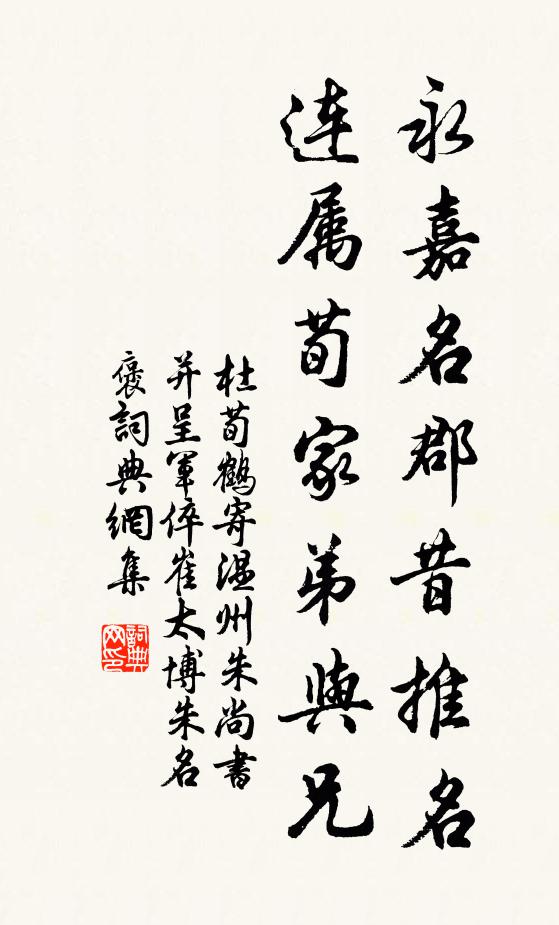 永嘉名郡昔推名
连属荀家弟與兄
杜荀鶴寄温州朱尚書
并呈軍倅崔太博朱名
褒詞典網集
詞典网印